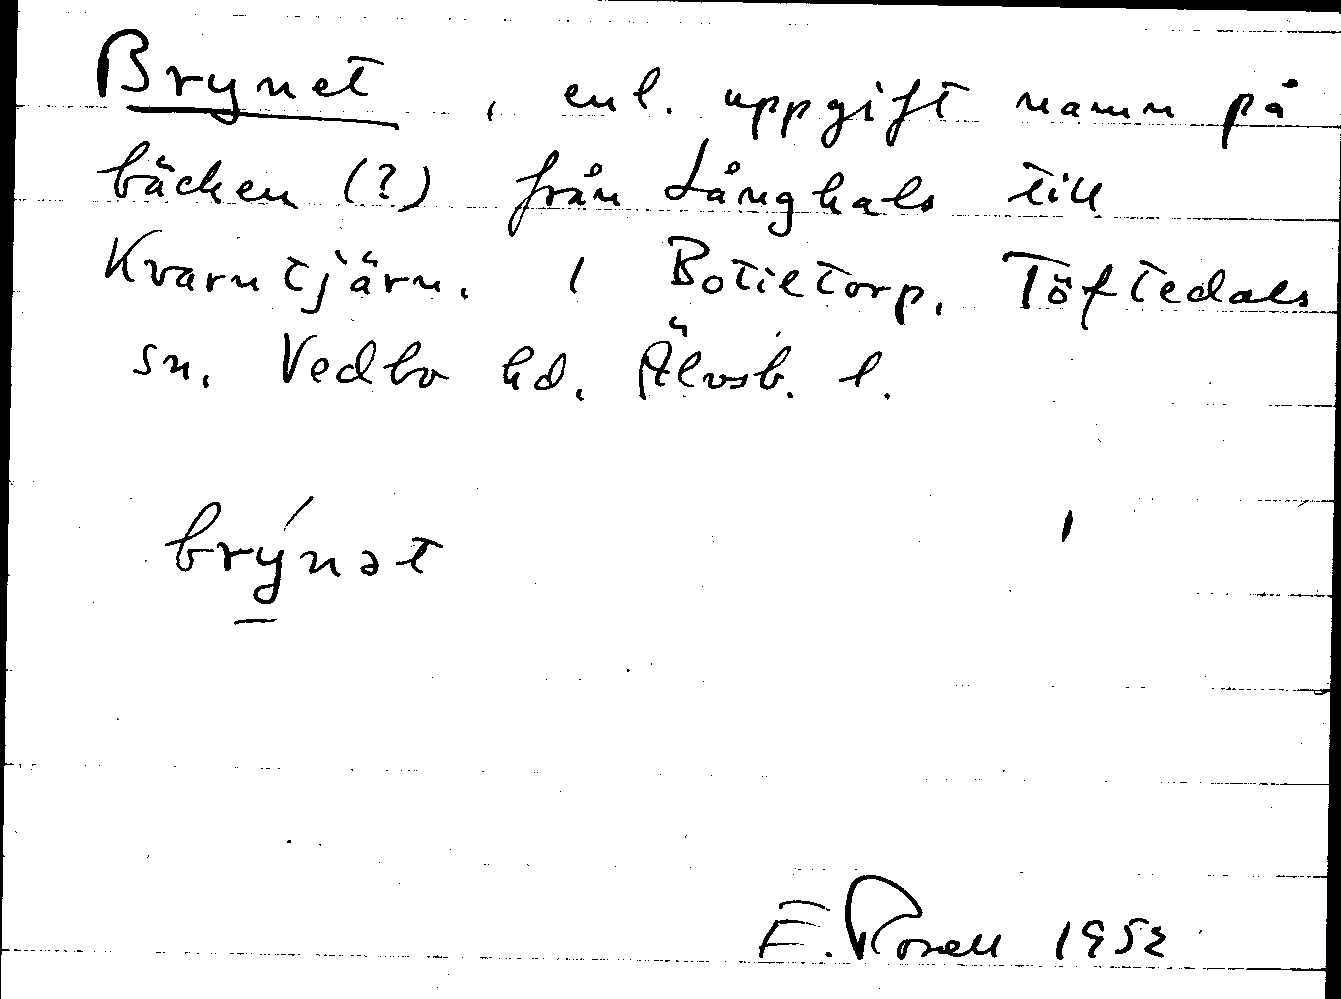 Brynet, enl. uppgift namn på
bäcken (?) från Långhals till
Kvarntjärn. I Botiltorp, Töftedals
sn, Vedbo hd. Älvsb. l.
brýnət
E. Rosell 1952